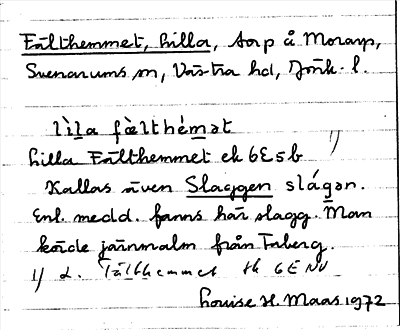 Fälthemmet, Lilla, torp å Morarp,
Svenarums sn, Västra hd, Jönk. l.
lìl̀a fæ̀lthém̀ət 1)
Lilla Fälthemmet ek 6E5b
Kallas även Slaggen slágən.
Enl. medd. fanns här slagg. Man
körde järnmalm från Taberg.
1) d. Fälthemmet ek 6E NV
Louise H. Maas 1972